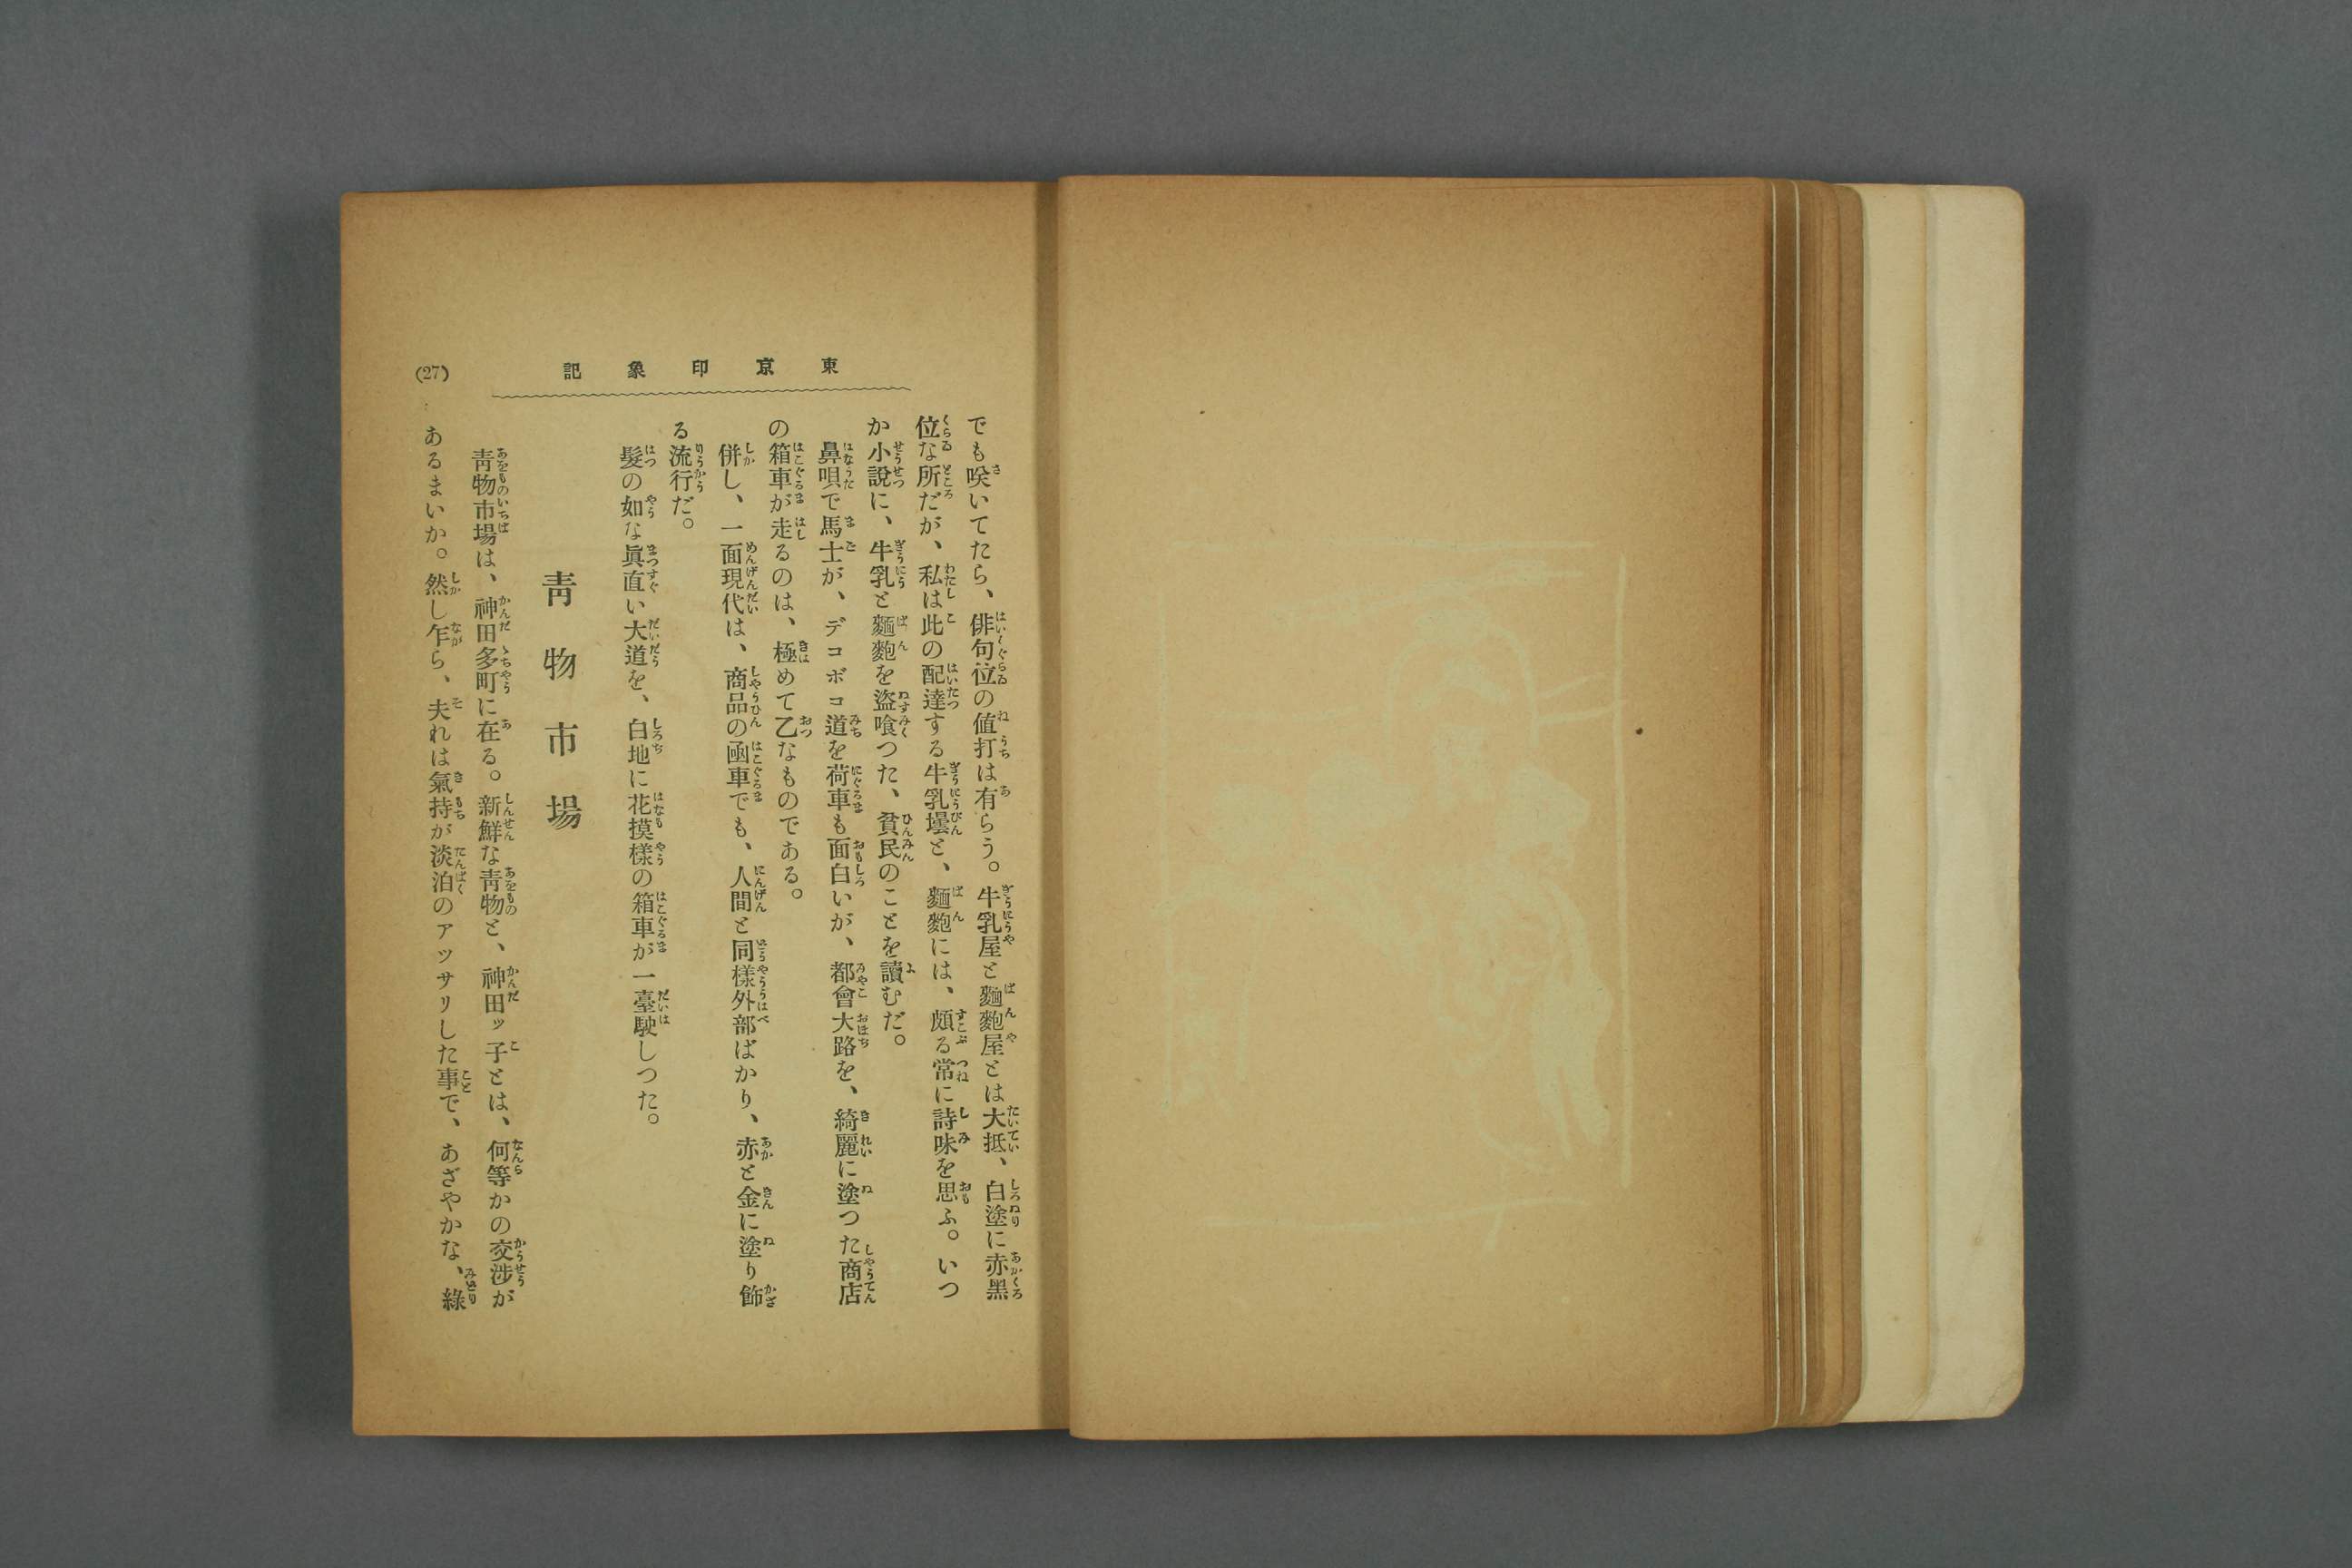 東京印象記
でも咲いてたら、俳句位の値打は有らう。牛乳屋と麵麭屋とは大抵、白塗に赤黑
位な所だが、私は此の配達する牛乳壜と、麵麭には、頗る常に詩味を思ふ。いつ
か小說に、牛乳と麵麭を盜喰つた、貧民のことを讀むだ。
鼻唄で馬士が、デコボコ道を荷車も面白いが、都會大路を、綺麗に塗つた商店
の箱車が走るのは、極めて乙なものである。
併し、一面現代は、商品の凾車でも、人間と同樣外部ばかり、赤と金に塗り飾
る流行だ。
髮の如な眞直い大道を、白地に花摸樣の箱車が一臺駛しつた。
靑物市場
靑物市場は、神田多町に在る。新鮮な靑物と、神田ッ子とは、何等かの交涉が
あるまいか。然し乍ら、夫れは氣持が淡泊のアッサリした事で、あざやかな、綠
(27)